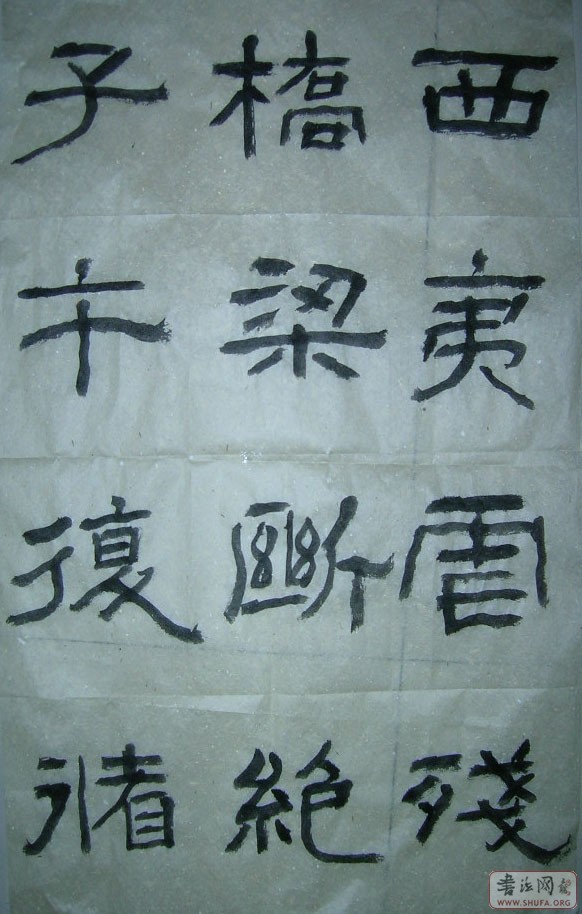 西夷虐殘
橋梁斷絕
子午復循
書法网
WWW.SHUFA.ORG